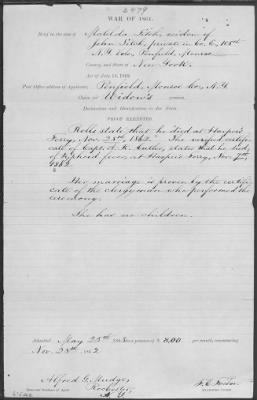 2479
WAR OF 1861.
Brief in the case of Matilda Fitch, widow of
John Fitch, private in Co. C, 108th
N.Y. Vols, Penfield, Monroe
County, and State of New York.
Act of July 14, 1862.
Post Office address of Applicant, Penfield, Monroe Co., N.Y.
Claim for Widow's pension.
Declaration and Identification in due Form.
PROOF EXHIBITED.
Rolls state that he died at Harper's
Ferry, Nov. 28th, 1862. The verified certifi-
cate of Capt. states that he died
of typhoid fever, at Harper's Ferry, Nov.
1862.
Her marriage is proven by the certifi-
cate of the clergyman who performed the
ceremony.
She has no children.
Admitted May 28th 1863 to a pension of $8.00 per month, commencing
Nov. 28th 1862
Alfred G. Mudge,
Rochester,
N.Y.